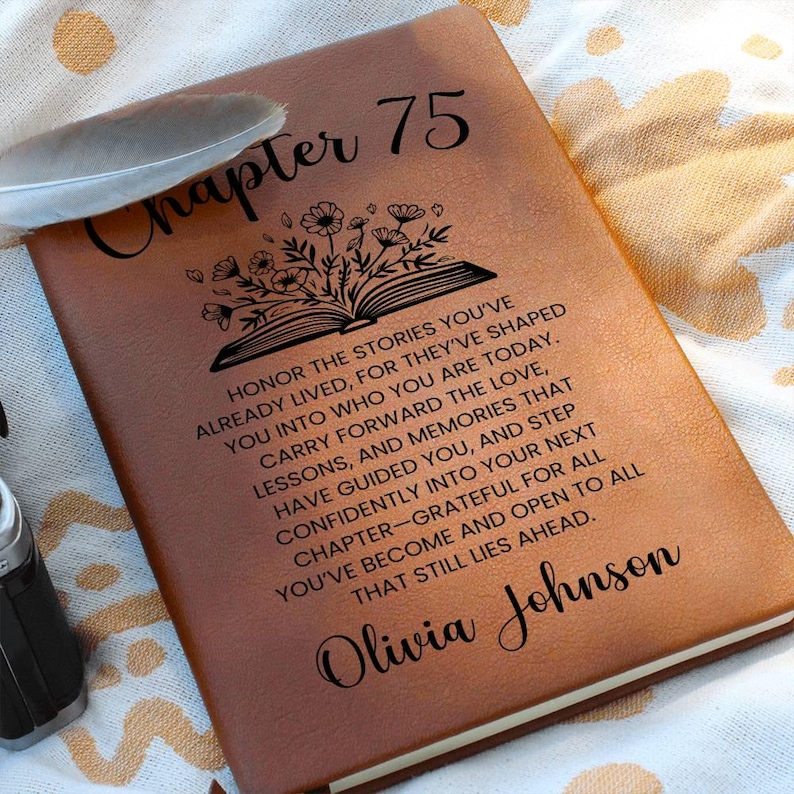 Chapter 75
HONOR THE STORIES YOU'VE
ALREADY LIVED, FOR THEY'VE SHAPED
YOU INTO WHO YOU ARE TODAY.
CARRY FORWARD THE LOVE,
LESSONS, AND MEMORIES THAT
HAVE GUIDED YOU, AND STEP
CONFIDENTLY INTO YOUR NEXT
CHAPTER—GRATEFUL FOR ALL
YOU'VE BECOME AND OPEN TO ALL
THAT STILL LIES AHEAD.
Olivia Johnson